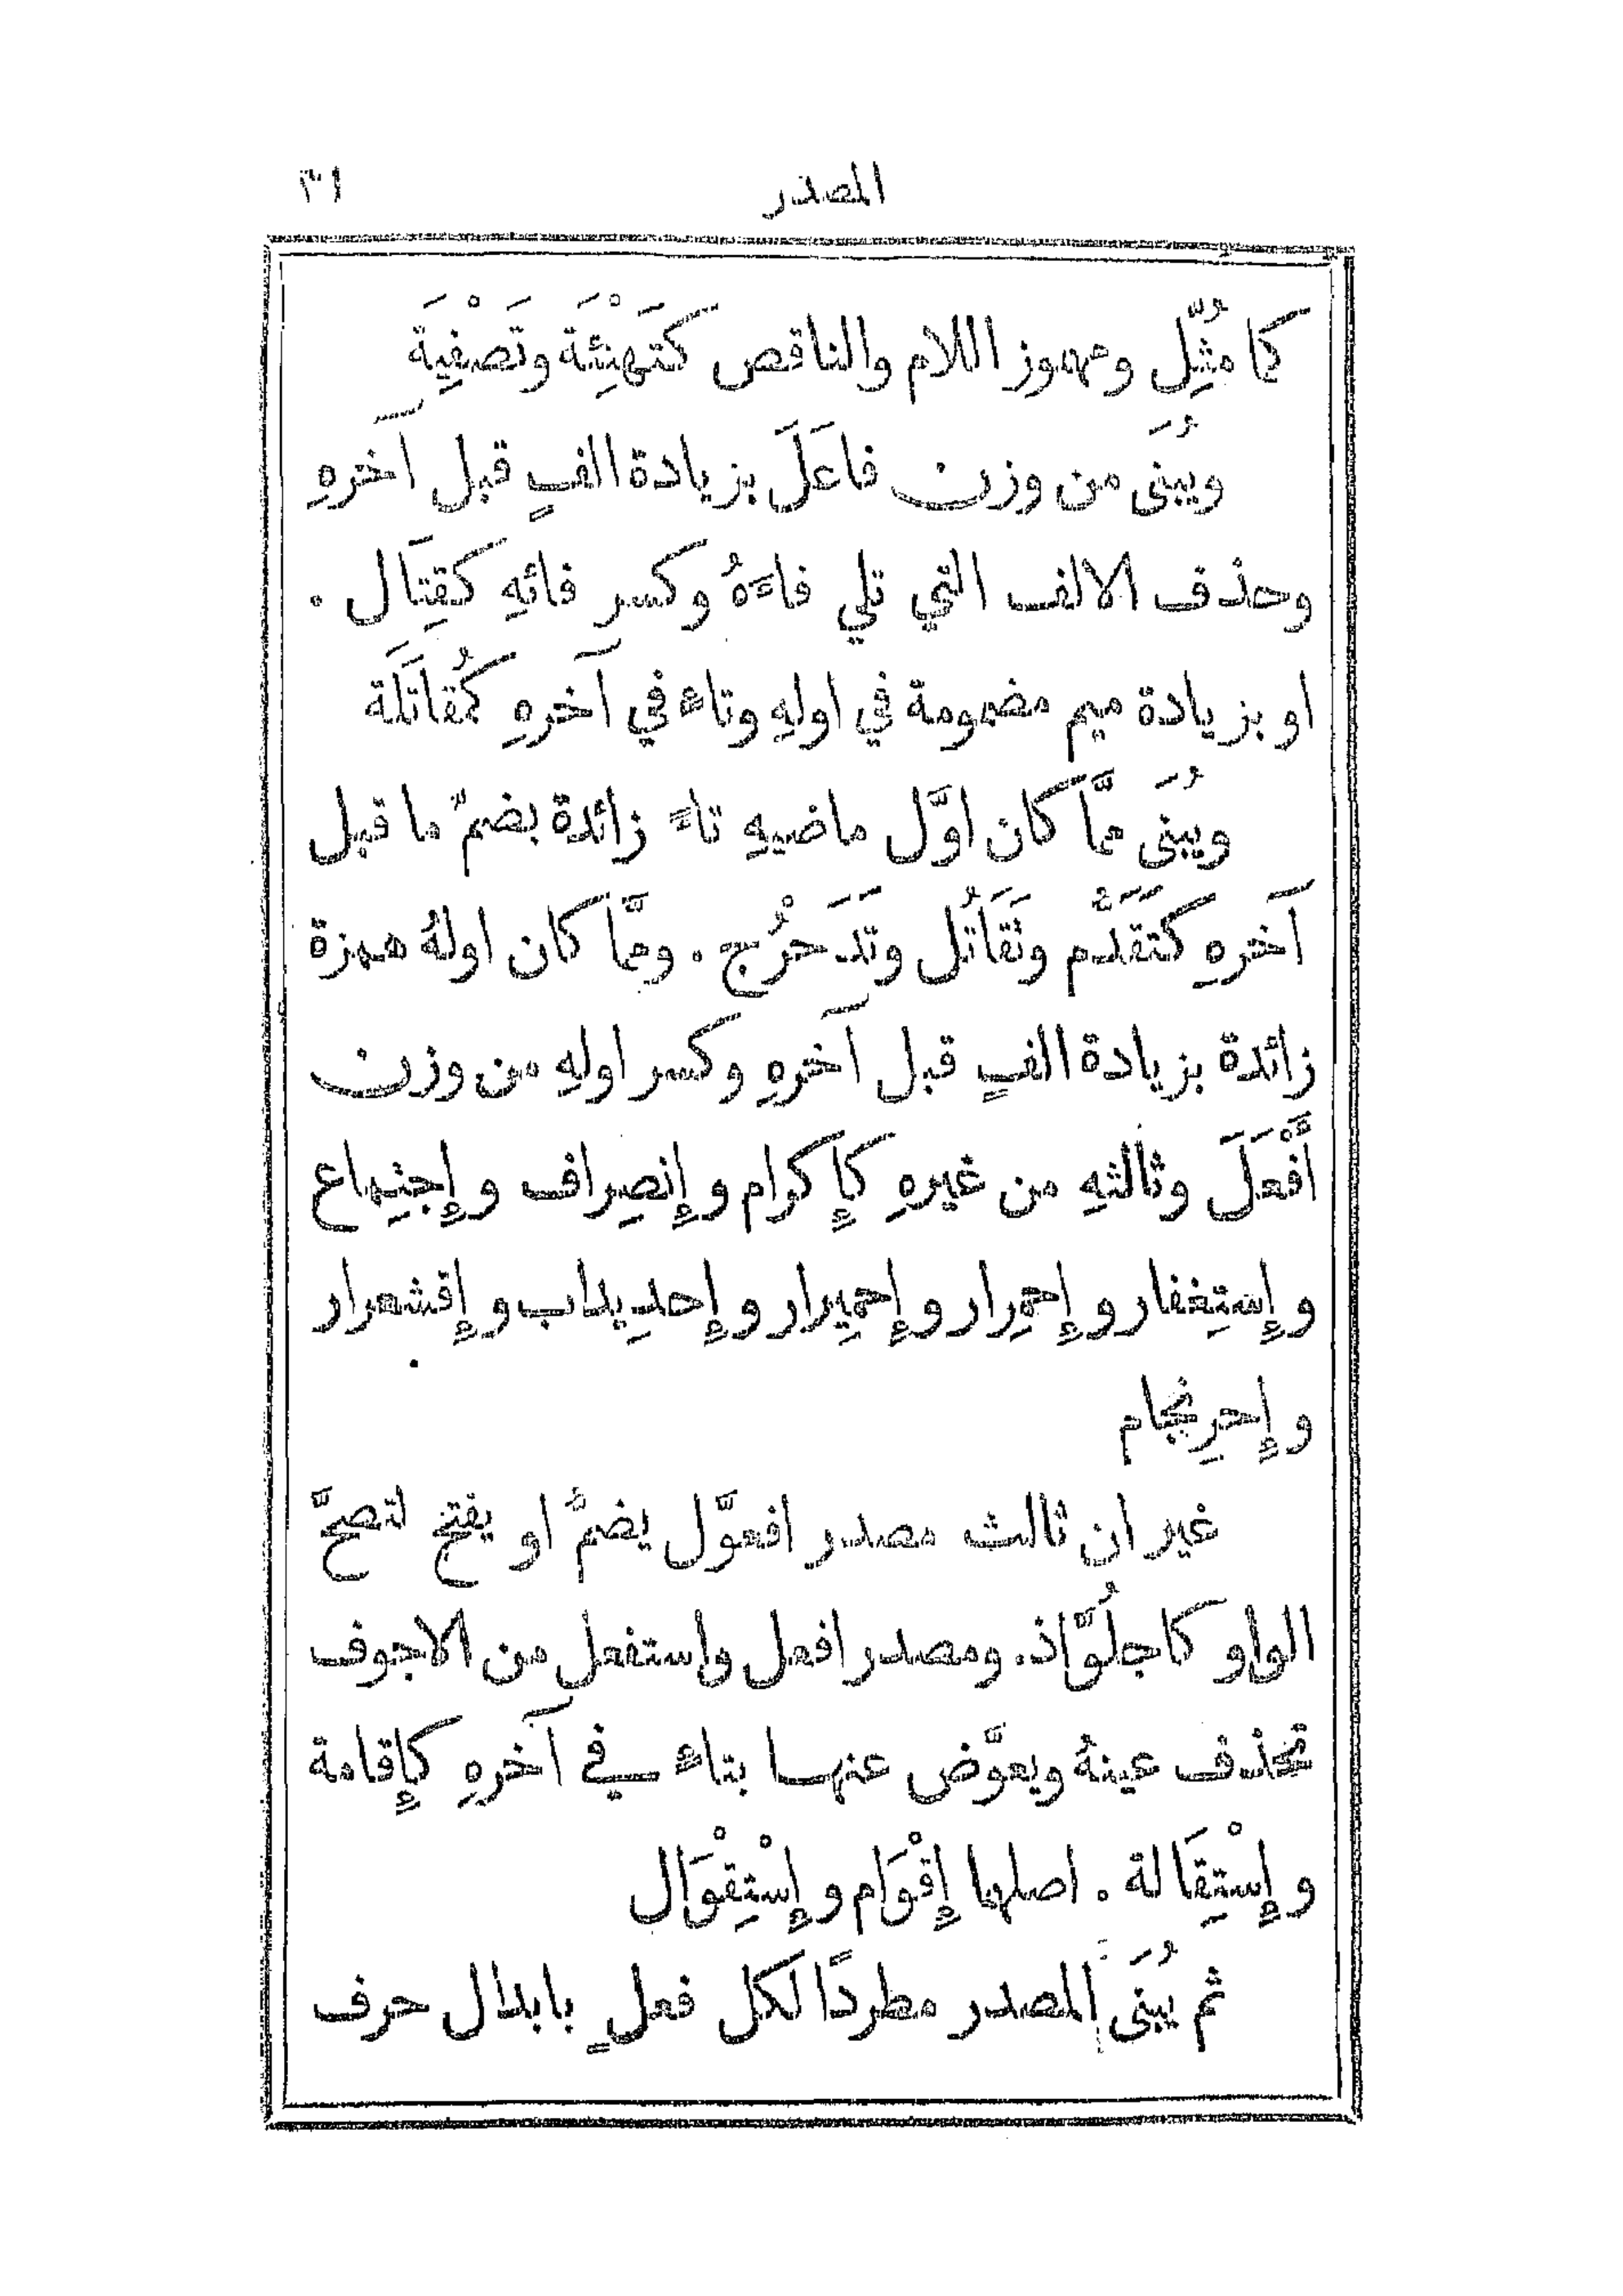 المصدر ٣١
كما مُثِّل ومهموز اللام والناقص كتَهْنِئَة وتَصْفِيَة
ويُبنَى من وزن فاعَلَ بزيادة الفٍ قبل آخرهِ
وحذف الالف التي تلي فاءَهُ وكسر فائهِ كقِتَال .
او بزيادة ميم مضمومة في اولهِ وتاءٍ في آخرهِ كمُقاتَلَة
ويُبنَى ممَّا كان اوَّل ماضيهِ تاءً زائدة بضمّ ما قبل
آخرهِ كتَقَدُّم وتَقَاتُل وتَدَحْرُج . وممَّا كان اولهُ همزة
زائدة بزيادة الفٍ قبل آخرهِ وكسر اولهِ من وزن
أَفْعَلَ وثالثهِ من غيرهِ كإكرام وإنصِراف وإجتِماع
وإستِغفار وإحمِرار وإحمِيرار وإحدِيداب وإقشعرار
وإحرِنجام
غير ان ثالث مصدر افعوَّل يضمُّ او يفتح لتصحَّ
الواو كاجلُوَّاذ. ومصدر افعل واستفعل من الاجوف
تحذف عينهُ ويعوَّض عنها بتاءٍ في آخرهِ كإقامة
وإسْتِقَالة . اصلهما إقْوَام وإسْتِقْوَال
ثم يُبنَى المصدر مطردًا لكل فعلٍ بابدال حرف